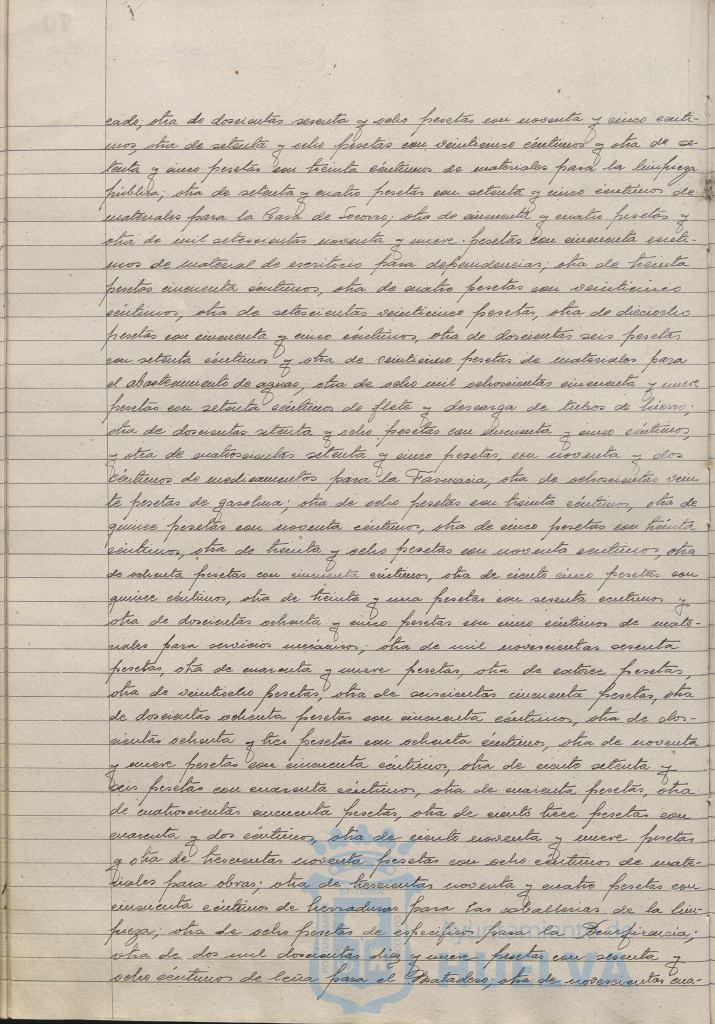 cado; otra de doscientas sesenta y ocho pesetas con noventa y cinco cénti-
mos, otra de setenta y ocho pesetas con veinticinco céntimos y otra de se-
tenta y cinco pesetas con treinta céntimos de materiales para la limpieza
pública; otra de setenta y cuatro pesetas con setenta y cinco céntimos de
materiales para la Casa de Socorro; otra de cincuenta y cuatro pesetas y
otra de mil setescientas noventa y nueve pesetas con cincuenta cénti-
mos de material de escritorio para dependencias; otra de treinta
pesetas cincuenta céntimos, otra de cuatro pesetas con veinticinco
céntimos, otra de setescientas veinticinco pesetas, otra de dieciocho
pesetas con cincuenta y cinco céntimos, otra de doscientas seis pesetas
con setenta céntimos y otra de veinticinco pesetas de materiales para
el abastecimiento de aguas, otra de ocho mil ochoscientas cincuenta y nueve
pesetas con setenta céntimos de flete y descarga de tubos de hierro;
otra de doscientas setenta y ocho pesetas con cincuenta y cinco céntimos,
y otra de cuatroscientas setenta y cinco pesetas, con noventa y dos
céntimos de medicamentos para la Farmacia; otra de ochoscientas vein-
te pesetas de gasolina; otra de ocho pesetas con treinta céntimos, otra de
quince pesetas con noventa céntimos, otra de cinco pesetas con treinta
céntimos, otra de treinta y ocho pesetas con noventa céntimos, otra
de ochenta pesetas con cincuenta céntimos, otra de ciento cinco pesetas con
quince céntimos, otra de treinta y una pesetas con sesenta céntimos y
otra de doscientas ochenta y cinco pesetas con cinco céntimos de mate-
riales para servicios mecánicos; otra de mil novescientas sesenta
pesetas, otra de cuarenta y nueve pesetas, otra de catorce pesetas,
otra de veintiocho pesetas, otra de seiscientas cincuenta pesetas, otra
de doscientas ochenta pesetas con cincuenta céntimos, otra de dos-
cientas ochenta y tres pesetas con ochenta céntimos, otra de noventa
y nueve pesetas con cincuenta céntimos, otra de ciento setenta y
seis pesetas con cuarenta céntimos, otra de cuarenta pesetas, otra
de cuatroscientas cincuenta pesetas, otra de ciento trece pesetas con
cuarenta y dos céntimos, otra de ciento noventa y nueve pesetas
y otra de trescientas noventa pesetas con ocho céntimos de mate-
riales para obras; otra de trescientas noventa y cuatro pesetas con
cincuenta céntimos de herraduras para las caballerías de la lim-
pieza; otra de ocho pesetas de específicos para la Beneficencia;
otra de dos mil doscientas diez y nueve pesetas con sesenta y
ocho céntimos de leña para el Matadero; otra de novescientas cua-
Ayuntamiento de
HUELVA